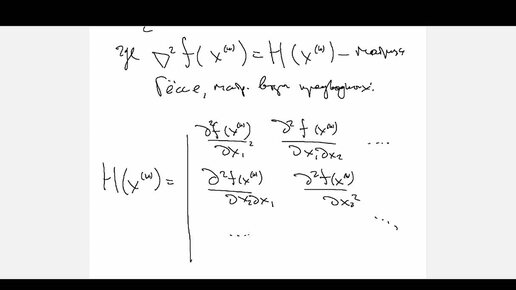 где ∇² f(x⁽ᵏ⁾) = H(x⁽ᵏ⁾) – матрица
Гёссе, матр. втор производных.
∂²f(x⁽ᵏ⁾)/∂x₁² ∂²f(x⁽ᵏ⁾)/∂x₁∂x₂ ....
H(x⁽ᵏ⁾) = ∂²f(x⁽ᵏ⁾)/∂x₂∂x₁ ∂²f(x⁽ᵏ⁾)/∂x₂²
.... ...,